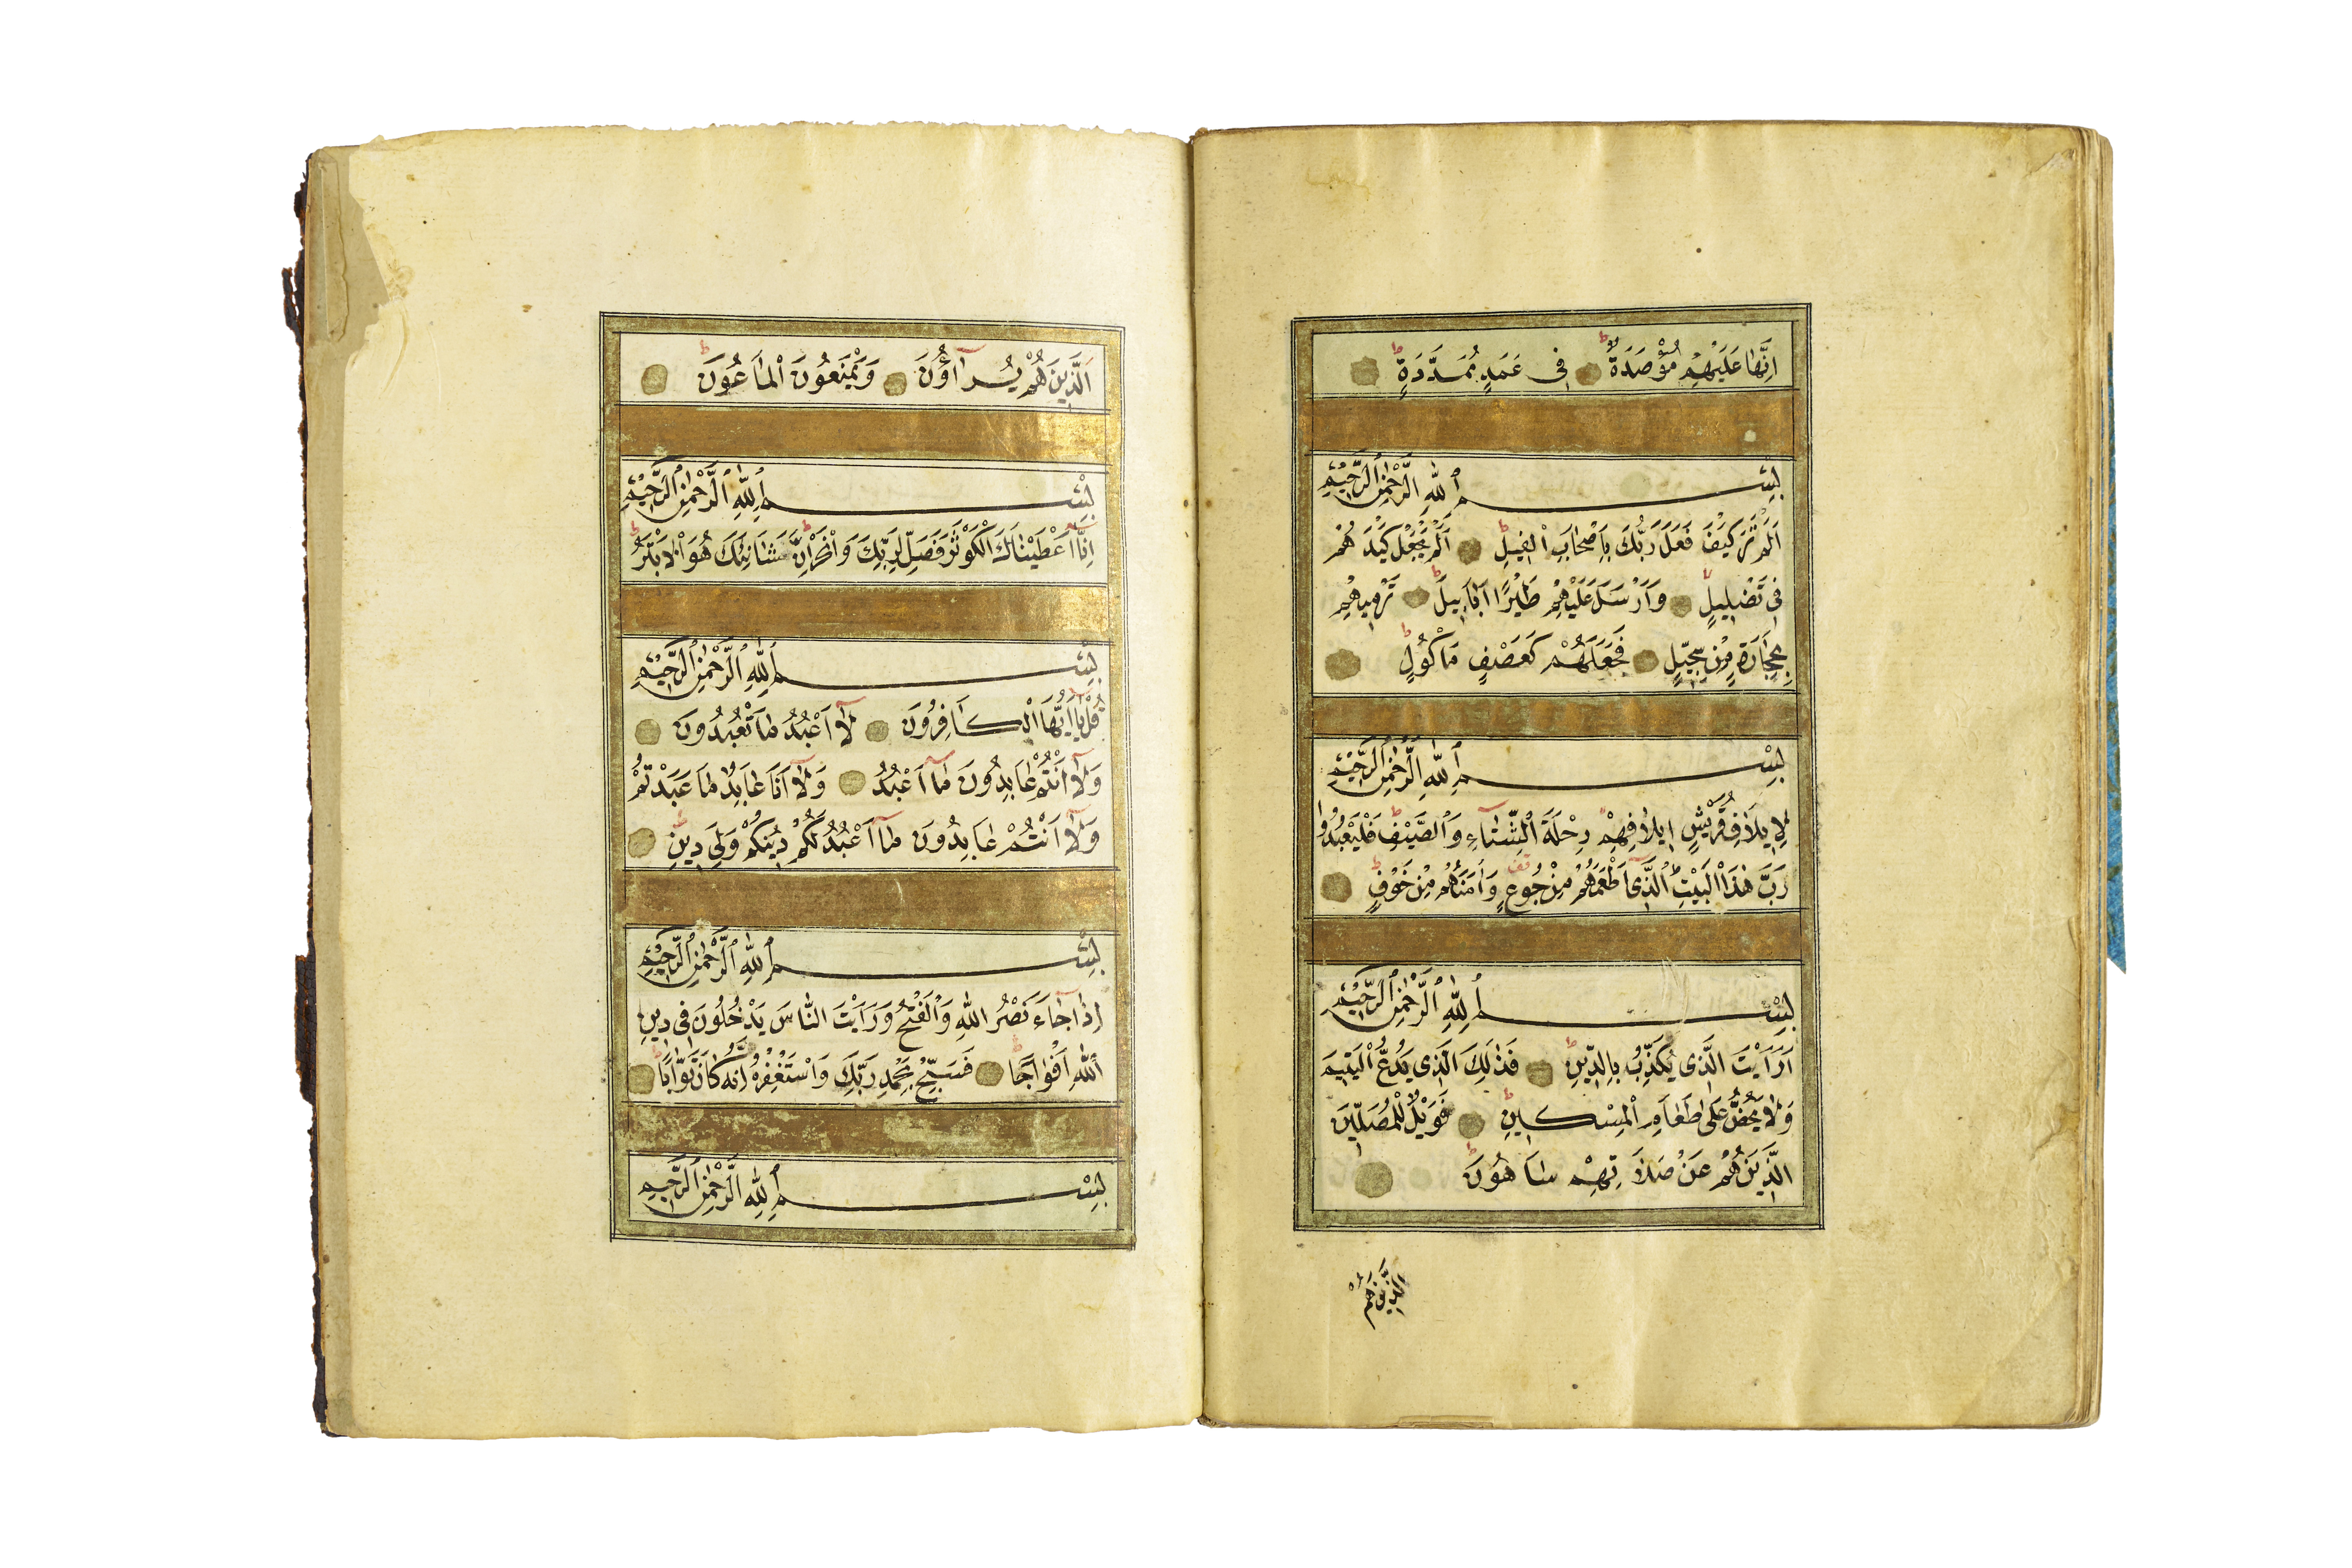 اِنَّهَا عَلَيْهِمْ مُؤْصَدَةٌ فِى عَمَدٍ مُمَدَّدَةٍ
بِسْمِ اللّٰهِ الرَّحْمٰنِ الرَّحِيْمِ
اَلَمْ تَرَ كَيْفَ فَعَلَ رَبُّكَ بِاَصْحَابِ الْفِيلِ اَلَمْ يَجْعَلْ كَيْدَهُمْ
فِى تَضْلِيلٍ وَاَرْسَلَ عَلَيْهِمْ طَيْرًا اَبَابِيلَ تَرْمِيهِمْ
بِحِجَارَةٍ مِنْ سِجِّيلٍ فَجَعَلَهُمْ كَعَصْفٍ مَاْكُولٍ
بِسْمِ اللّٰهِ الرَّحْمٰنِ الرَّحِيْمِ
لِاِيلَافِ قُرَيْشٍ اِيلَافِهِمْ رِحْلَةَ الشِّتَاءِ وَالصَّيْفِ فَلْيَعْبُدُوا
رَبَّ هٰذَا الْبَيْتِ الَّذِى اَطْعَمَهُمْ مِنْ جُوعٍ وَاٰمَنَهُمْ مِنْ خَوْفٍ
بِسْمِ اللّٰهِ الرَّحْمٰنِ الرَّحِيْمِ
اَرَاَيْتَ الَّذِى يُكَذِّبُ بِالدِّينِ فَذٰلِكَ الَّذِى يَدُعُّ الْيَتِيمَ
وَلَا يَحُضُّ عَلٰى طَعَامِ الْمِسْكِينِ فَوَيْلٌ لِلْمُصَلِّينَ
الَّذِينَ هُمْ عَنْ صَلَاتِهِمْ سَاهُونَ
الَّذِينَ هُمْ
اَلَّذِينَ هُمْ يُرَآؤُنَ وَيَمْنَعُونَ الْمَاعُونَ
بِسْمِ اللّٰهِ الرَّحْمٰنِ الرَّحِيْمِ
اِنَّا اَعْطَيْنَاكَ الْكَوْثَرَ فَصَلِّ لِرَبِّكَ وَانْحَرْ اِنَّ شَانِئَكَ هُوَ الْاَبْتَرُ
بِسْمِ اللّٰهِ الرَّحْمٰنِ الرَّحِيْمِ
قُلْ يَا اَيُّهَا الْكَافِرُونَ لَا اَعْبُدُ مَا تَعْبُدُونَ
وَلَا اَنْتُمْ عَابِدُونَ مَا اَعْبُدُ وَلَا اَنَا عَابِدٌ مَا عَبَدْتُمْ
وَلَا اَنْتُمْ عَابِدُونَ مَا اَعْبُدُ لَكُمْ دِينُكُمْ وَلِىَ دِينِ
بِسْمِ اللّٰهِ الرَّحْمٰنِ الرَّحِيْمِ
اِذَا جَاءَ نَصْرُ اللّٰهِ وَالْفَتْحُ وَرَاَيْتَ النَّاسَ يَدْخُلُونَ فِى دِينِ
اللّٰهِ اَفْوَاجًا فَسَبِّحْ بِحَمْدِ رَبِّكَ وَاسْتَغْفِرْهُ اِنَّهُ كَانَ تَوَّابًا
بِسْمِ اللّٰهِ الرَّحْمٰنِ الرَّحِيْمِ